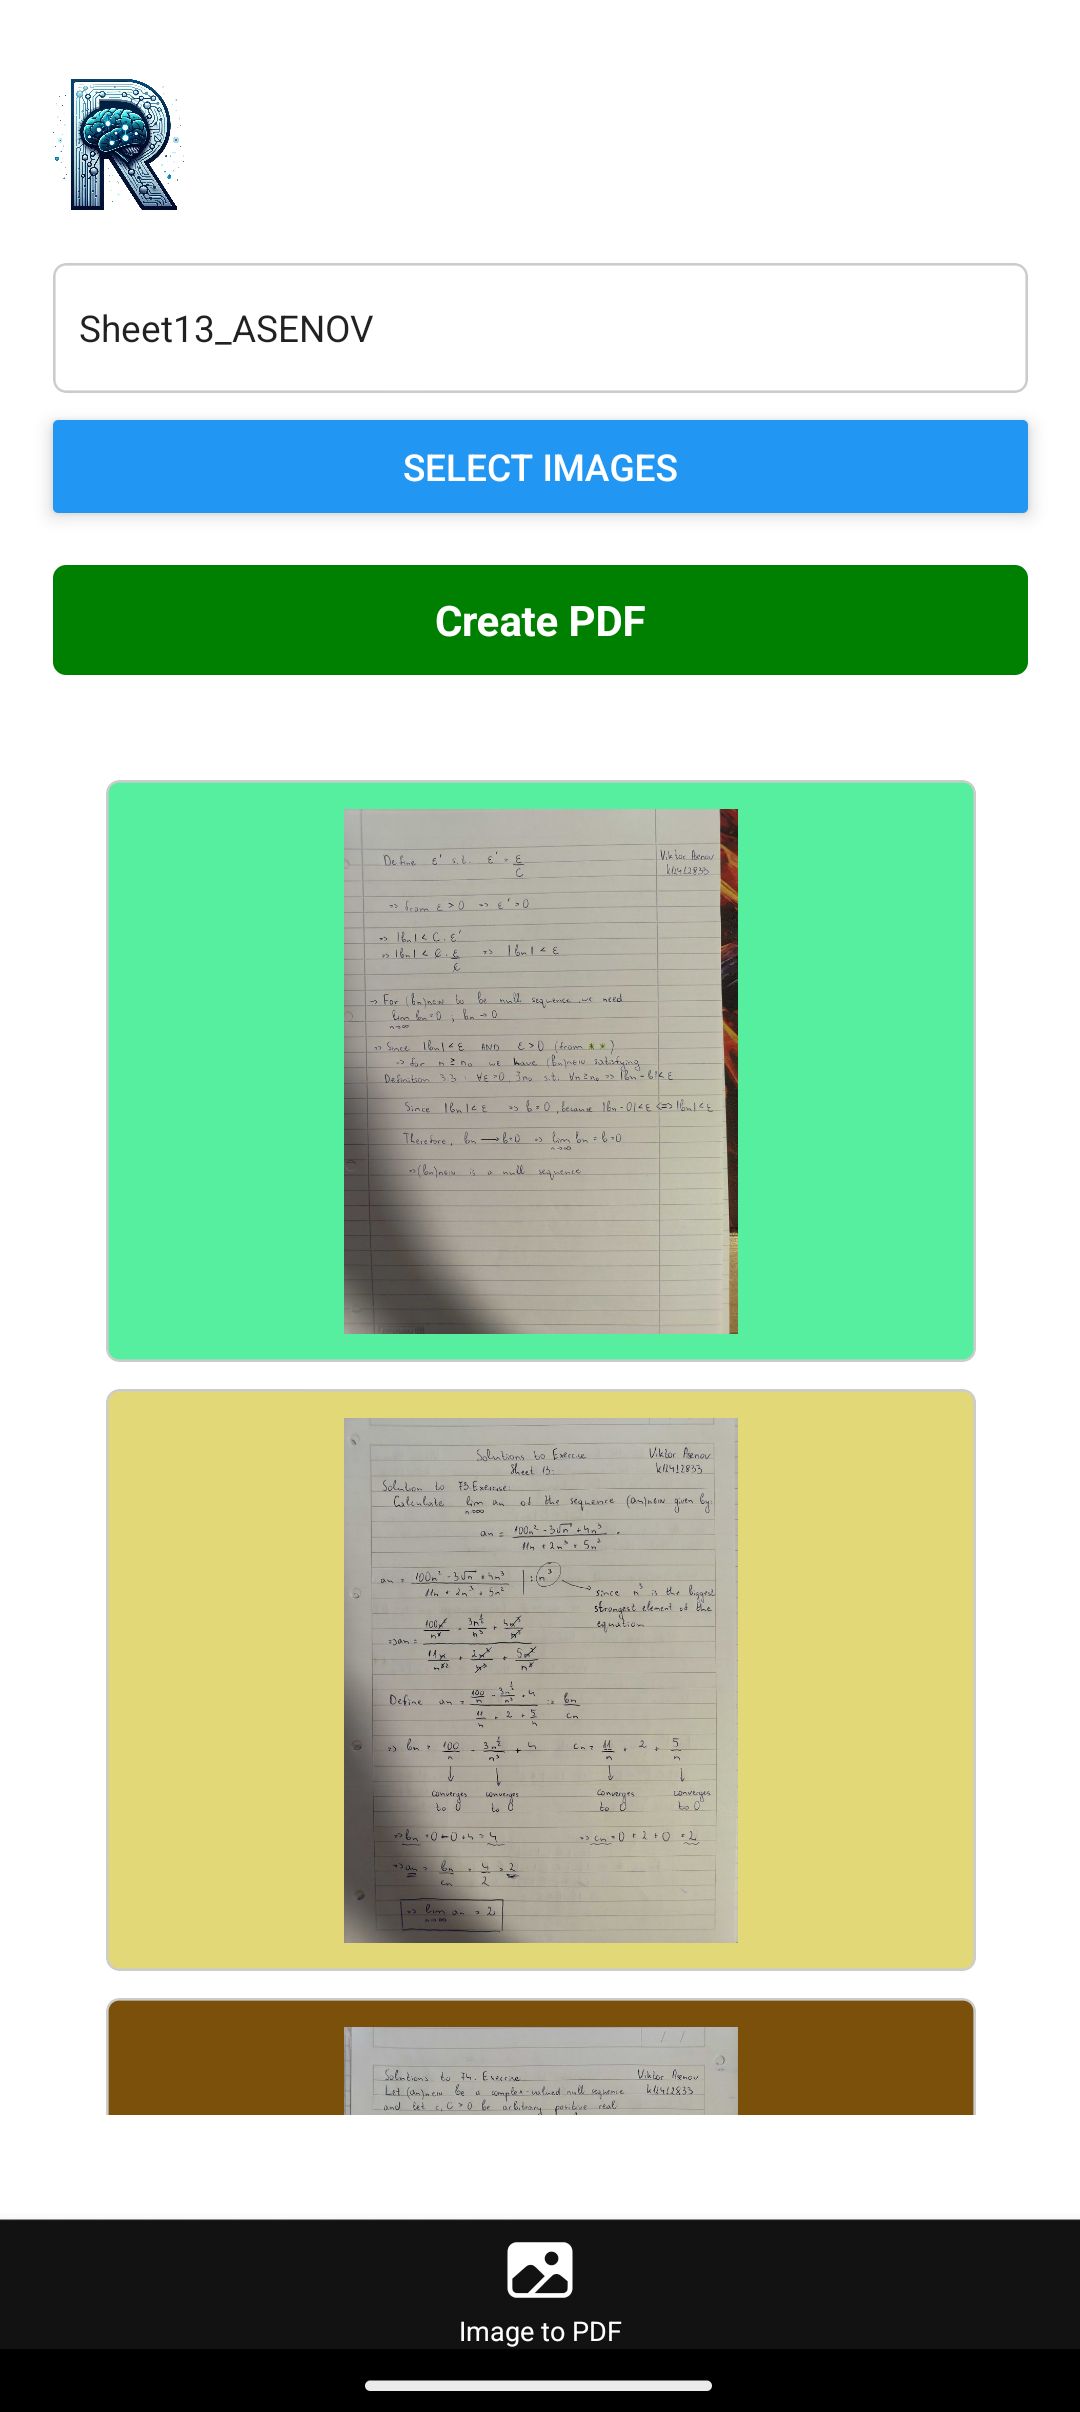 R
Sheet13_ASENOV
SELECT IMAGES
Create PDF
Define ε' s.t. ε' = ε/C
Viktor Asenov
k12412833
=> from ε > 0 => ε' > 0
=> |bn| < C. ε'
=> |bn| < C. ε/C => |bn| < ε
→ For (bn)n∈N to be null sequence we need
lim n→∞ bn = 0 ; bn → 0
=> Since |bn| < ε AND ε > 0 (from **)
=> for n ≥ n₀ we have (bn)n∈N satisfying
Definition 3.3 : ∀ε>0, ∃n₀ s.t. ∀n≥n₀ => |bn - b| < ε
Since |bn| < ε => b = 0, because |bn - 0| < ε <=> |bn| < ε
Therefore, bn → b=0 => lim n→∞ bn = b = 0
=> (bn)n∈N is a null sequence
Solutions to Exercise
Viktor Asenov
Sheet 13:
k12412833
Solution to 73.Exercise:
Calculate lim n→∞ an of the sequence (an)n∈N given by:
an = (100n² - 3√n + 4n³) / (11n + 2n³ + 5n²) .
an = (100n² - 3√n + 4n³) / (11n + 2n³ + 5n²) | : n³
since n³ is the biggest
strongest element of the
equation
=> an =
Define an = (100/n - 3n^½/n³ + 4) / (11/n + 2 + 5/n) := bn/cn
=> bn = 100/n - 3n^½/n³ + 4 cn = 11/n + 2 + 5/n
converges converges converges converges
to 0 to 0 to 0 to 0
=> bn = 0 - 0 + 4 = 4 => cn = 0 + 2 + 0 = 2
=> an = bn/cn = 4/2 = 2
=> lim n→∞ an = 2
Solutions to 74. Exercise
Viktor Asenov
Let (an)n∈N be a complex-valued null sequence
k12412833
and let c, C > 0 be arbitrary positive real
Image to PDF